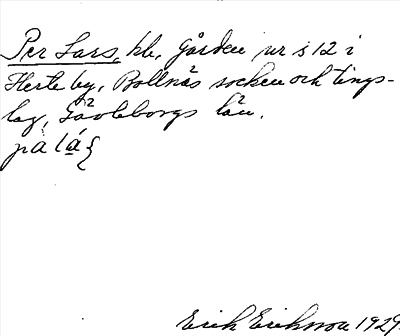 Per Lars, hb, Gården nr s 12 i
Herte by, Bollnäs socken och tings-
lag, Gävleborgs län.
pà lá̱ʃ
Erik Eriksson 1929.